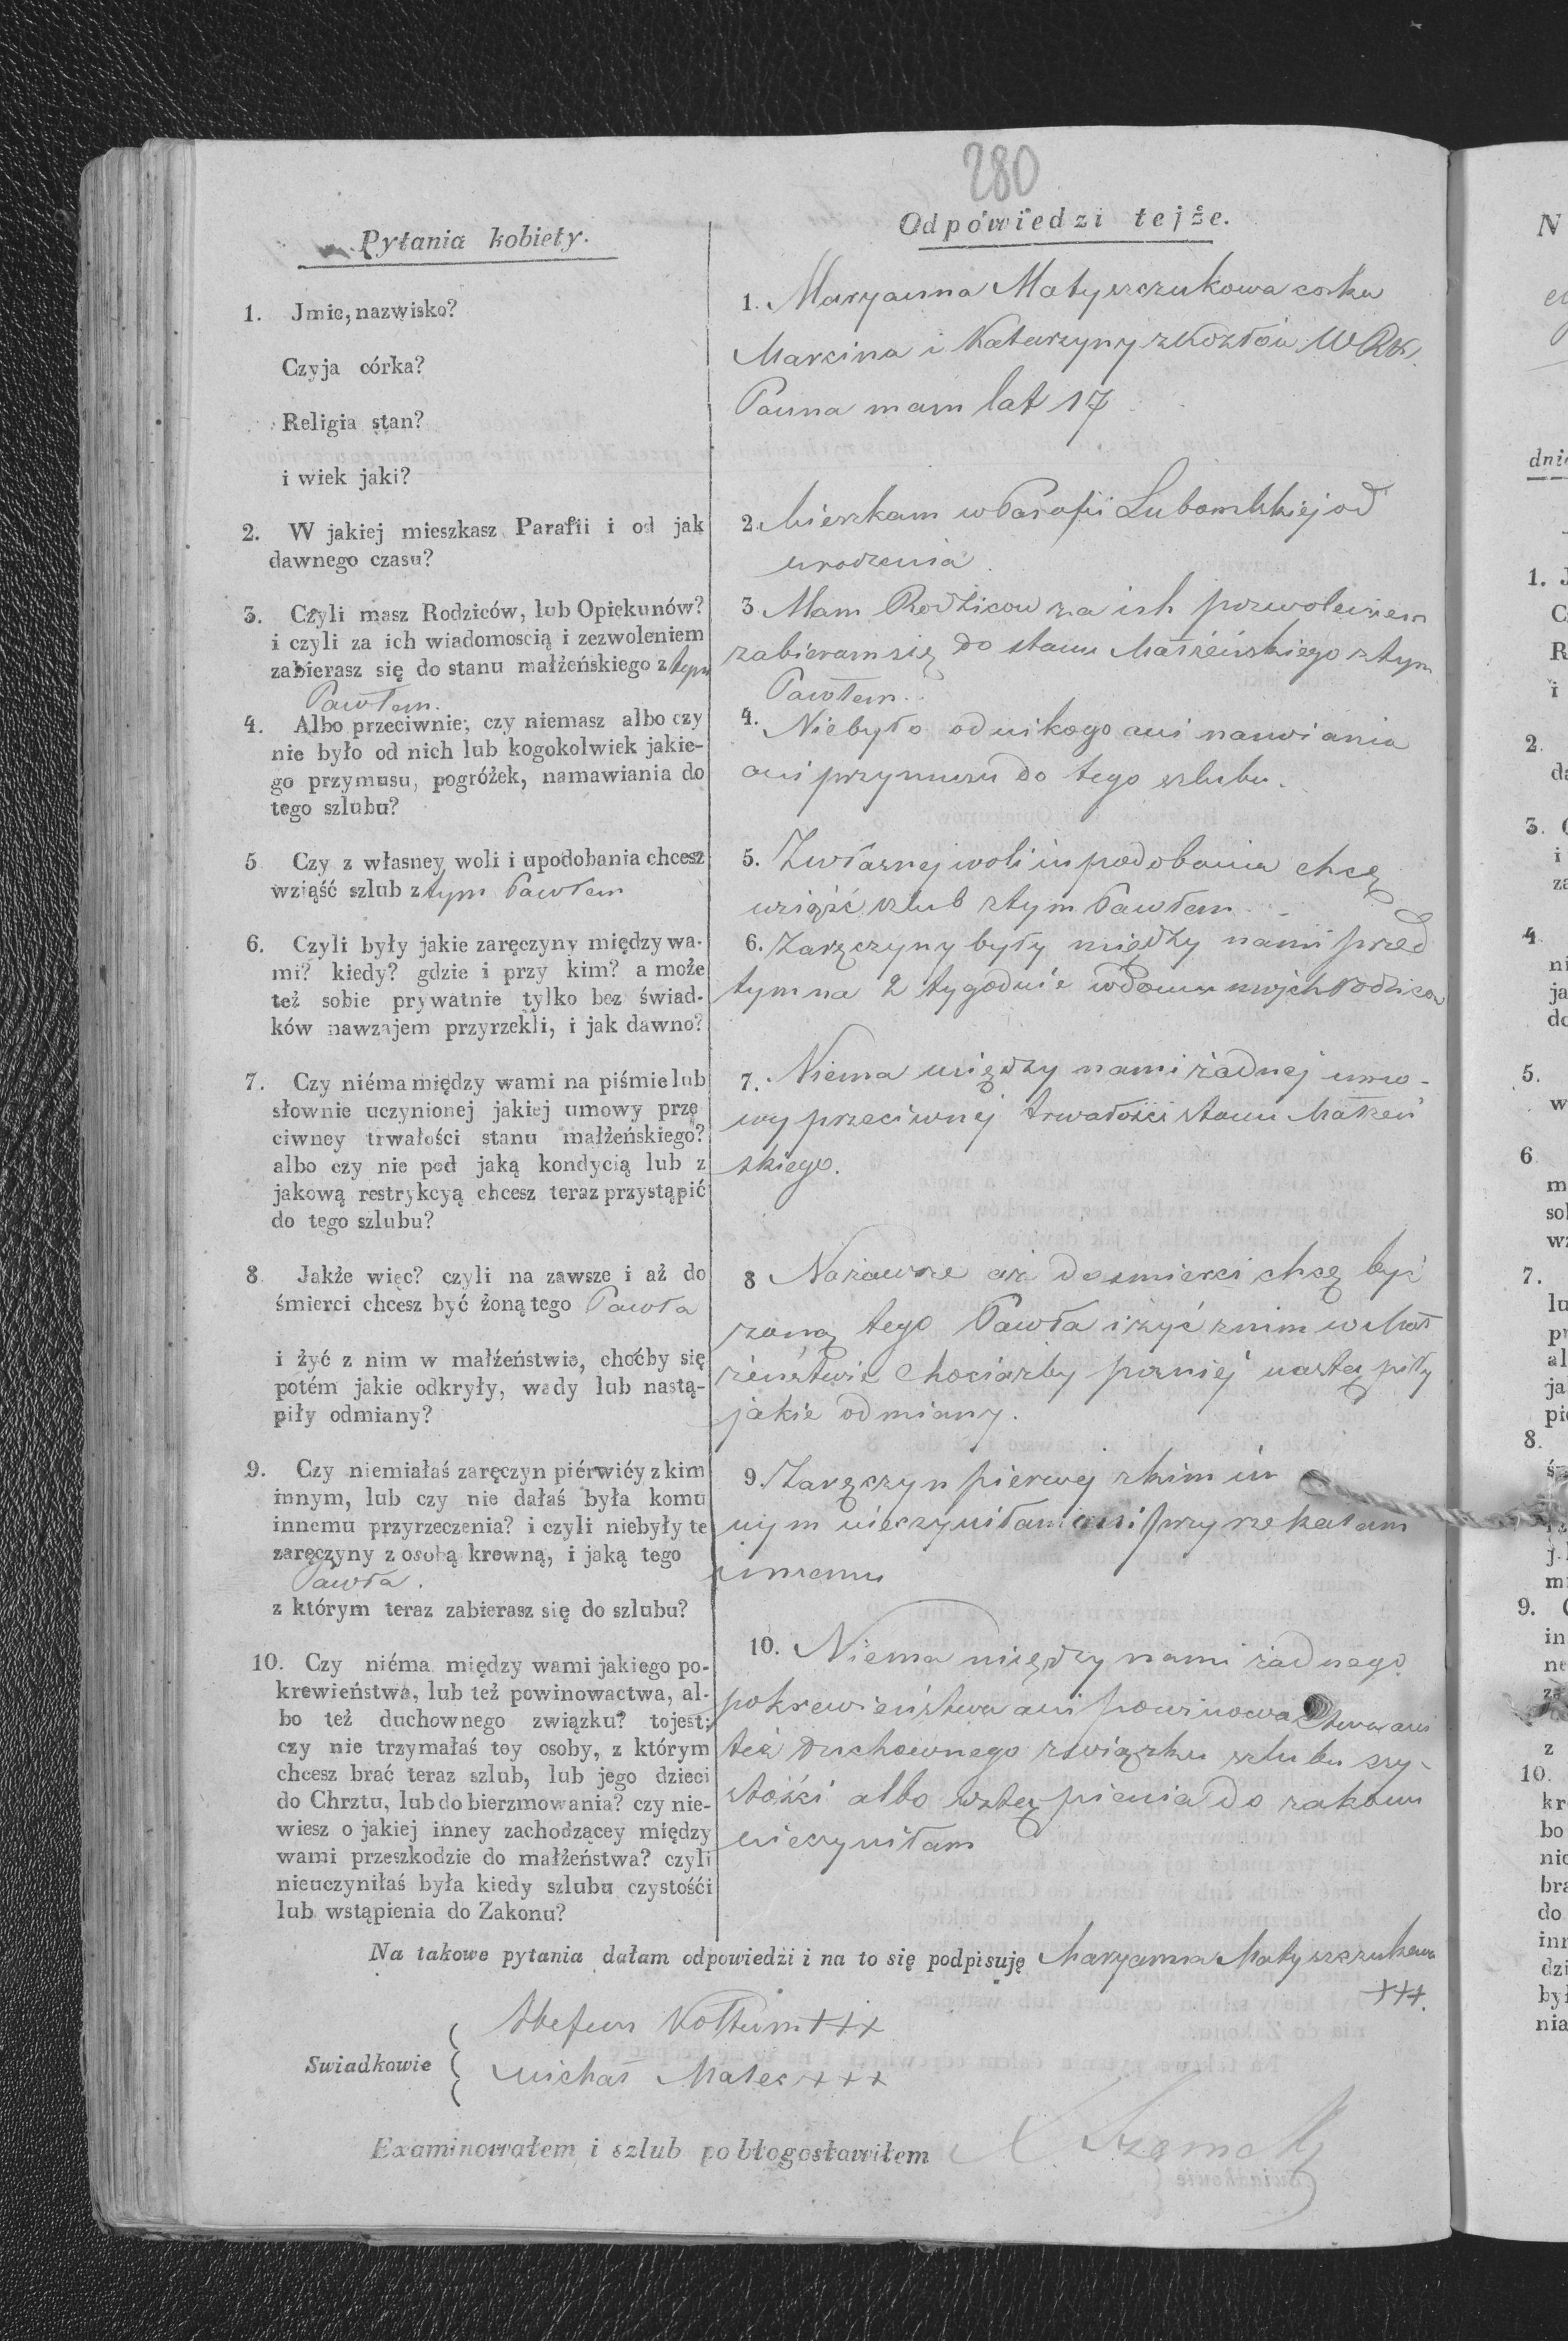 280
Pytania kobiety.
Odpowiedzi tejże.
1. Jmie, nazwisko?
Czyja córka?
Religia stan?
i wiek jaki?
1. Maryanna Matyszczukowa corka
Marcina i Katarzyny z Kozłów WRK.
Panna mam lat 17
2. W jakiej mieszkasz Parafii i od jak
dawnego czasu?
2. Mieszkam w Parafii Lubomlskiej od
urodzenia
3. Czyli masz Rodziców, lub Opiekunów?
i czyli za ich wiadomoscią i zezwoleniem
zabierasz się do stanu małżeńskiego z tym
Pawłem.
3 Mam Rodzicow za ich pozwoleniem
zabieram się do stanu Małżeńskiego z tym
Pawłem.
4. Albo przeciwnie, czy niemasz albo czy
nie było od nich lub kogokolwiek jakie-
go przymusu, pogróżek, namawiania do
tego szlubu?
4. Niebyło od nikogo ani namwiania
ani przymusu do tego szlubu.
5 Czy z własney woli i upodobania chcesz
wziąść szlub z tym Pawłem
5. Z własnej woli i upodobania chcę
wziąść szlub z tym Pawłem
6. Czyli były jakie zaręczyny między wa-
mi? kiedy? gdzie i przy kim? a może
też sobie prywatnie tylko bez świad-
ków nawzajem przyrzekli, i jak dawno?
6. Zaręczyny były między nami przed
tym na 2 tygodnie w domu mojch rodzicow
7. Czy niéma między wami na piśmie lub
słownie uczynionej jakiej umowy prze
ciwney trwałości stanu małżeńskiego?
albo czy nie pod jaką kondycią lub z
jakową restrykcyą chcesz teraz przystąpić
do tego szlubu?
7. Niema między nami żadnej umo-
wy przeciwnej trwałości stanu Małżeń
skiego.
8 Jakże więc? czyli na zawsze i aż do
śmierci chcesz być żoną tego Pawła
i żyć z nim w małżeństwie, choćby się
potém jakie odkryły, wady lub nastą-
piły odmiany?
8 Nazawsze aż do smierci chcę być
zoną tego Pawła i żyć z nim w Mał
żeństwie chociażby pozniej nastąpiły
jakie odmiany.
9. Czy niemiałaś zaręczyn piérwiéy z kim
innym, lub czy nie dałaś była komu
innemu przyrzeczenia? i czyli niebyły te
zaręczyny z osobą krewną, i jaką tego
Pawła.
z którym teraz zabierasz się do szlubu?
9. Zaręczyn pierwej z kim in
nym nieczyniłam ani przyrzekałam
innemu
10. Czy niéma między wami jakiego po-
krewieństwa, lub też powinowactwa, al-
bo też duchownego związku? tojest;
czy nie trzymałaś tey osoby, z którym
chcesz brać teraz szlub, lub jego dzieci
do Chrztu, lub do bierzmowania? czy nie-
wiesz o jakiej inney zachodzącey między
wami przeszkodzie do małżeństwa? czyli
nieuczyniłaś była kiedy szlubu czystośći
lub wstąpienia do Zakonu?
10. Niema między nami żadnego
pokrewieństwa ani powinowactwa ani
też duchownego związku szlubu czy-
stości albo wstąpienia do zakonu
nieczyniłam
Na takowe pytania dałam odpowiedzi i na to się podpisuję Maryanna Matyszczukowa
+++.
Swiadkowie
Stefan Kołtun +++
Michał Malec +++
Examinowałem i szlub pobłogosławiłem